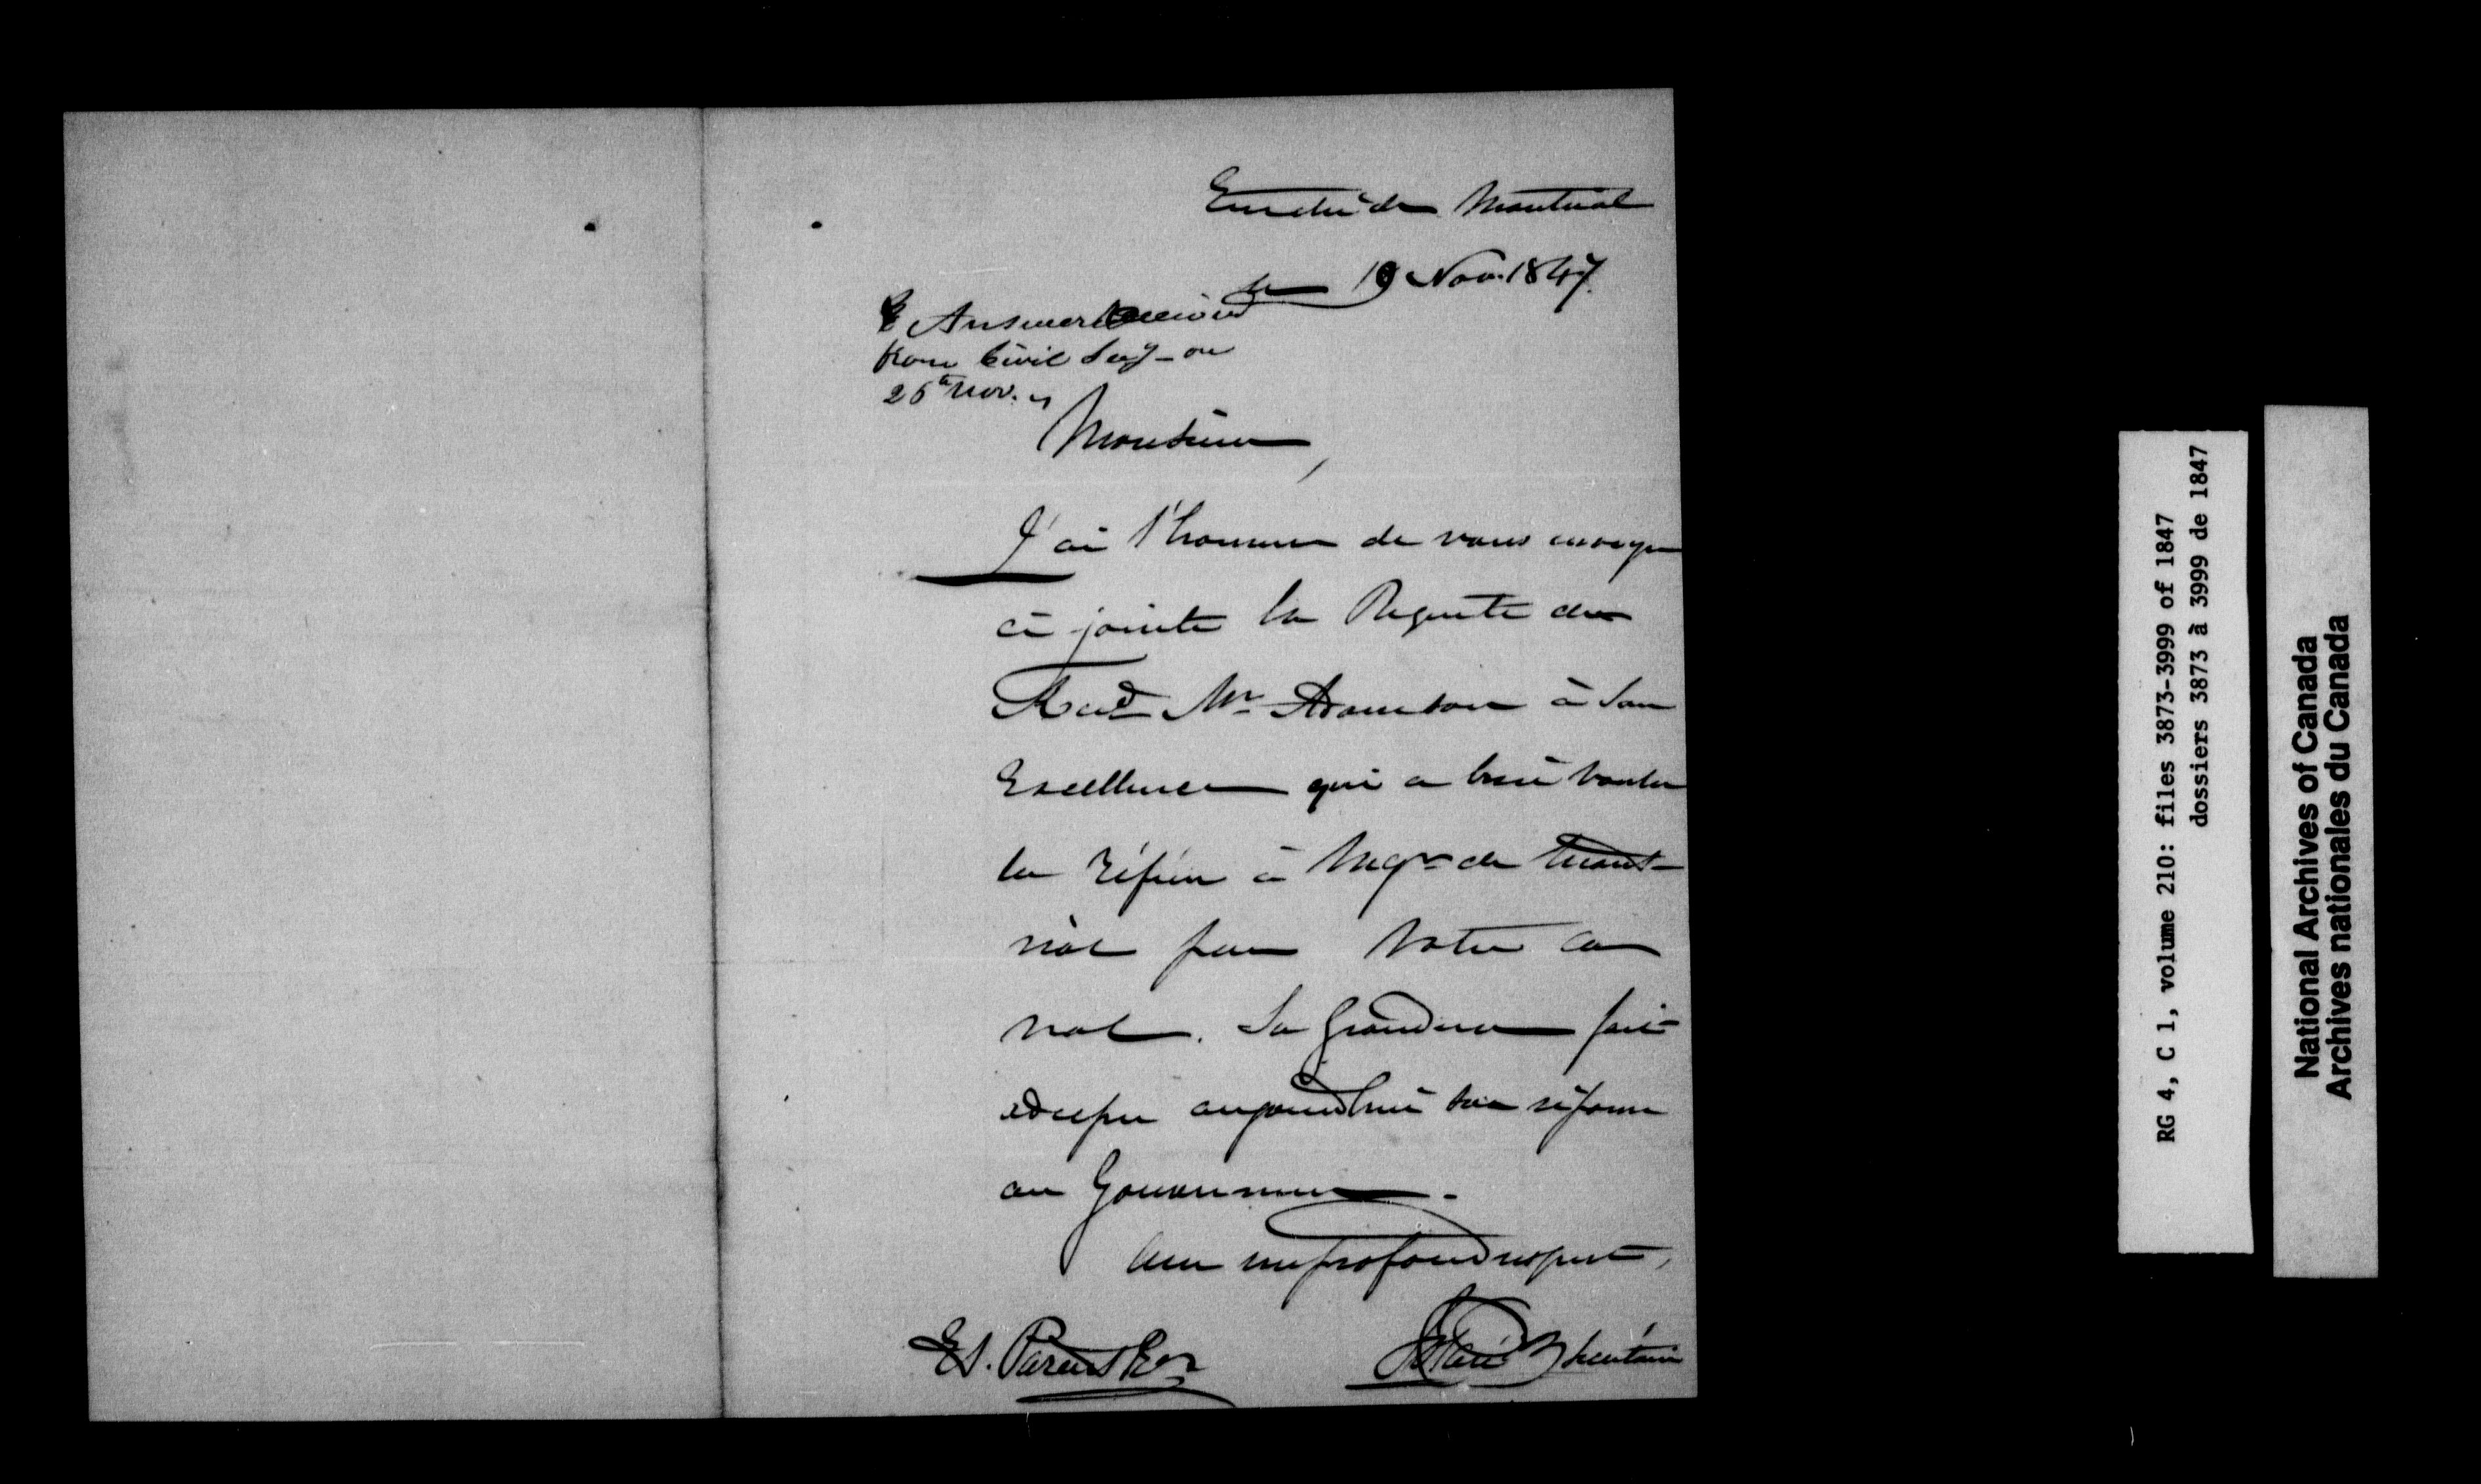 Evêché de Montréal
le 19 Nov. 1847.
Answer received
from Civil Secy - on
25th Nov.
Monsieur,
J'ai l'honneur de vous envoyer
ci-jointe la Requête du
Revd Mr Adamson à Son
Excellence qui a bien voulu
la référer à Mgr de Mont-
réal par votre ca-
nal. Sa Grandeur fait
adresser aujourd'hui sa réponse
au Gouvernement.
Avec un profond respect,
Et. Parent Esr
Secrétaire
RG 4, C 1, volume 210: files 3873-3999 of 1847
dossiers 3873 à 3999 de 1847
National Archives of Canada
Archives nationales du Canada